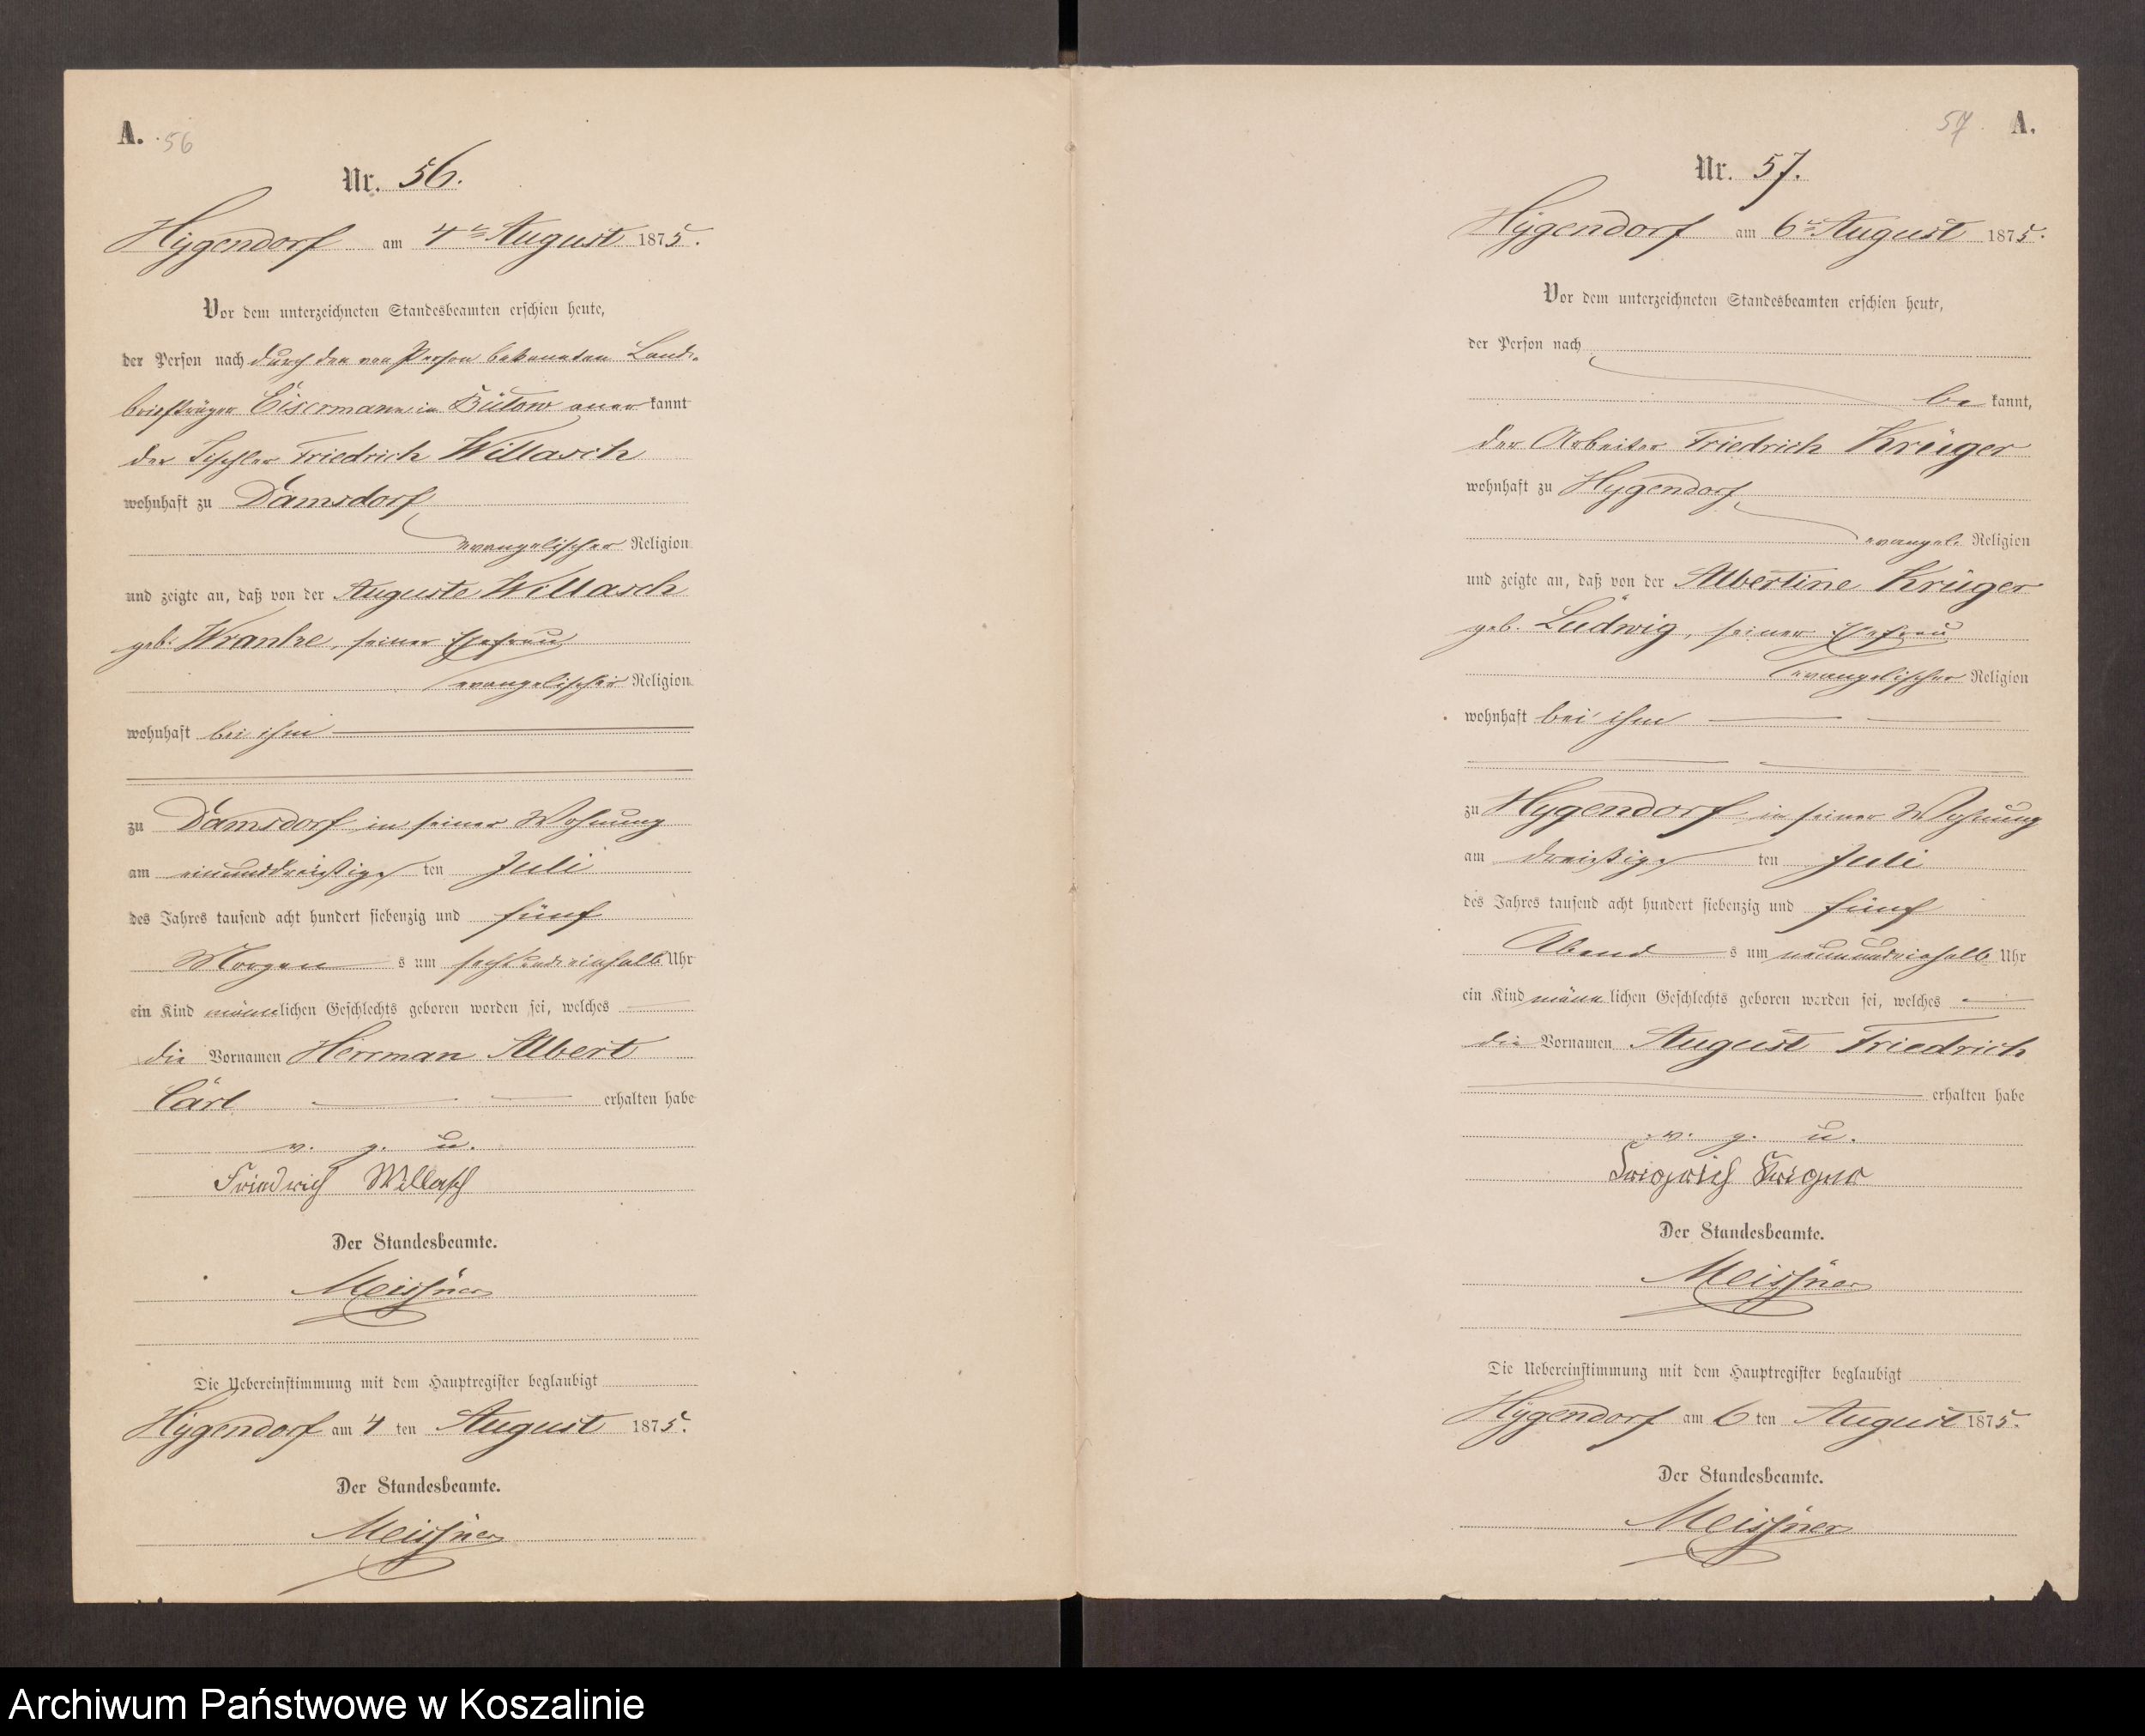 A. 56
Nr. 56.
Hygendorf am 4ten August 1875.
Vor dem unterzeichneten Standesbeamten erschien heute,
der Person nach durch den von Person bekannten Land-
briefträger Eisermann in Bütow aner kannt
der Tischler Friedrich Willasch
wohnhaft zu Damsdorf
evangelischer Religion
und zeigte an, daß von der Auguste Willasch
geb. Wranke, seiner Ehefrau
evangelischer Religion
wohnhaft bei ihm
zu Damsdorf in seiner Wohnung
am einunddreißigs ten Juli
des Jahres tausend acht hundert siebenzig und fünf
Morgen s um sechsundeinhalb Uhr
ein Kind männlichen Geschlechts geboren worden sei, welches
die Vornamen Herrman Albert
Carl erhalten habe
v. g. u.
Friedrich Willasch
Der Standesbeamte.
Meissner
Die Uebereinstimmung mit dem Hauptregister beglaubigt
Hygendorf am 4 ten August 1875.
Der Standesbeamte.
Meissner
57 A.
Nr. 57.
Hygendorf am 6ten August 1875.
Vor dem unterzeichneten Standesbeamten erschien heute,
der Person nach
be kannt,
der Arbeiter Friedrich Krüger
wohnhaft zu Hygendorf
evangel. Religion
und zeigte an, daß von der Albertine Krüger
geb. Ludwig, seiner Ehefrau
evangelischer Religion
wohnhaft bei ihm
zu Hygendorf in seiner Wohnung
am dreißigs ten Juli
des Jahres tausend acht hundert siebenzig und fünf
Abend s um neunundeinhalb Uhr
ein Kind männlichen Geschlechts geboren worden sei, welches
die Vornamen August Friedrich
erhalten habe
v. g. u.
Der Standesbeamte.
Meissner
Die Uebereinstimmung mit dem Hauptregister beglaubigt
Hygendorf am 6 ten August 1875.
Der Standesbeamte.
Meissner
Archiwum Państwowe w Koszalinie